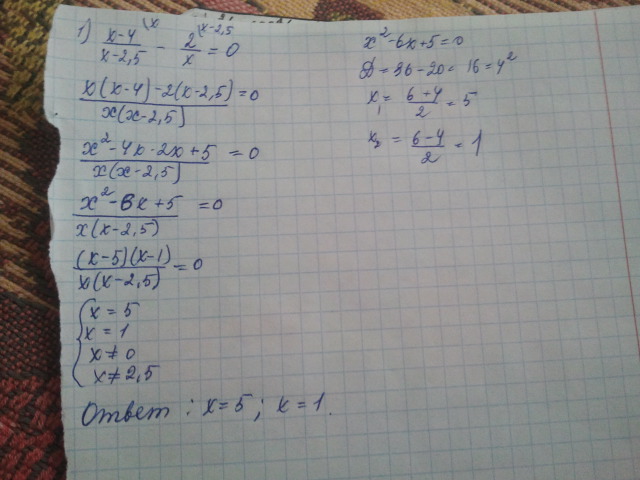 1) \frac{x-4}{x-2,5}^{\(x} - \frac{2}{x}^{\(x-2,5} = 0
\frac{x(x-4)-2(x-2,5)}{x(x-2,5)} = 0
\frac{x^2-4x-2x+5}{x(x-2,5)} = 0
\frac{x^2-6x+5}{x(x-2,5)} = 0
\frac{(x-5)(x-1)}{x(x-2,5)} = 0
{ x = 5
x = 1
x ≠ 0
x ≠ 2,5
Ответ : x = 5 ; x = 1.
x^2-6x+5=0
D = 36-20 = 16 = 4^2
x_1 = \frac{6+4}{2} = 5
x_2 = \frac{6-4}{2} = 1